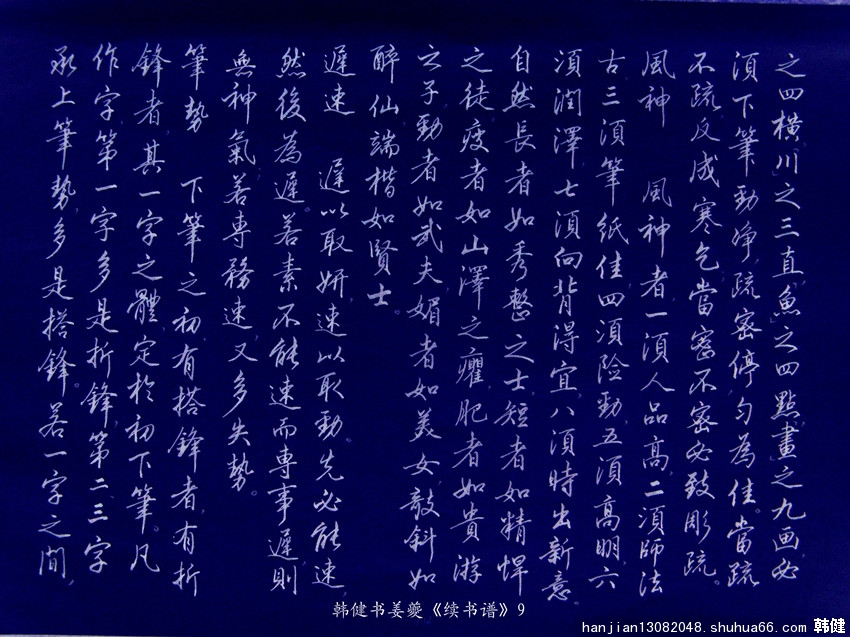 之四橫,川之三直,魚之四點,畫之九画,必
須下筆勁净,疏密停勻為佳。當疏
不疏,反成寒乞;當密不密,必致彫疏。
風神　風神者,一須人品高,二須師法
古,三須筆紙佳,四須險勁,五須高明,六
須潤澤,七須向背得宜,八須時出新意。
自然長者如秀整之士,短者如精悍
之徒,瘦者如山澤之癯,肥者如貴游
之子,勁者如武夫,媚者如美女,敧斜如
醉仙,端楷如賢士。
遲速　遲以取妍,速以取勁。先必能速,
然後為遲。若素不能速而專事遲,則
無神氣;若專務速,又多失勢。
筆勢　下筆之初,有搭鋒者,有折
鋒者,其一字之體,定於初下筆。凡
作字,第一字多是折鋒,第二、三字
承上筆勢,多是搭鋒。若一字之間,
韩健书姜夔《续书谱》9
hanjian13082048.shuhua66.com 韩健